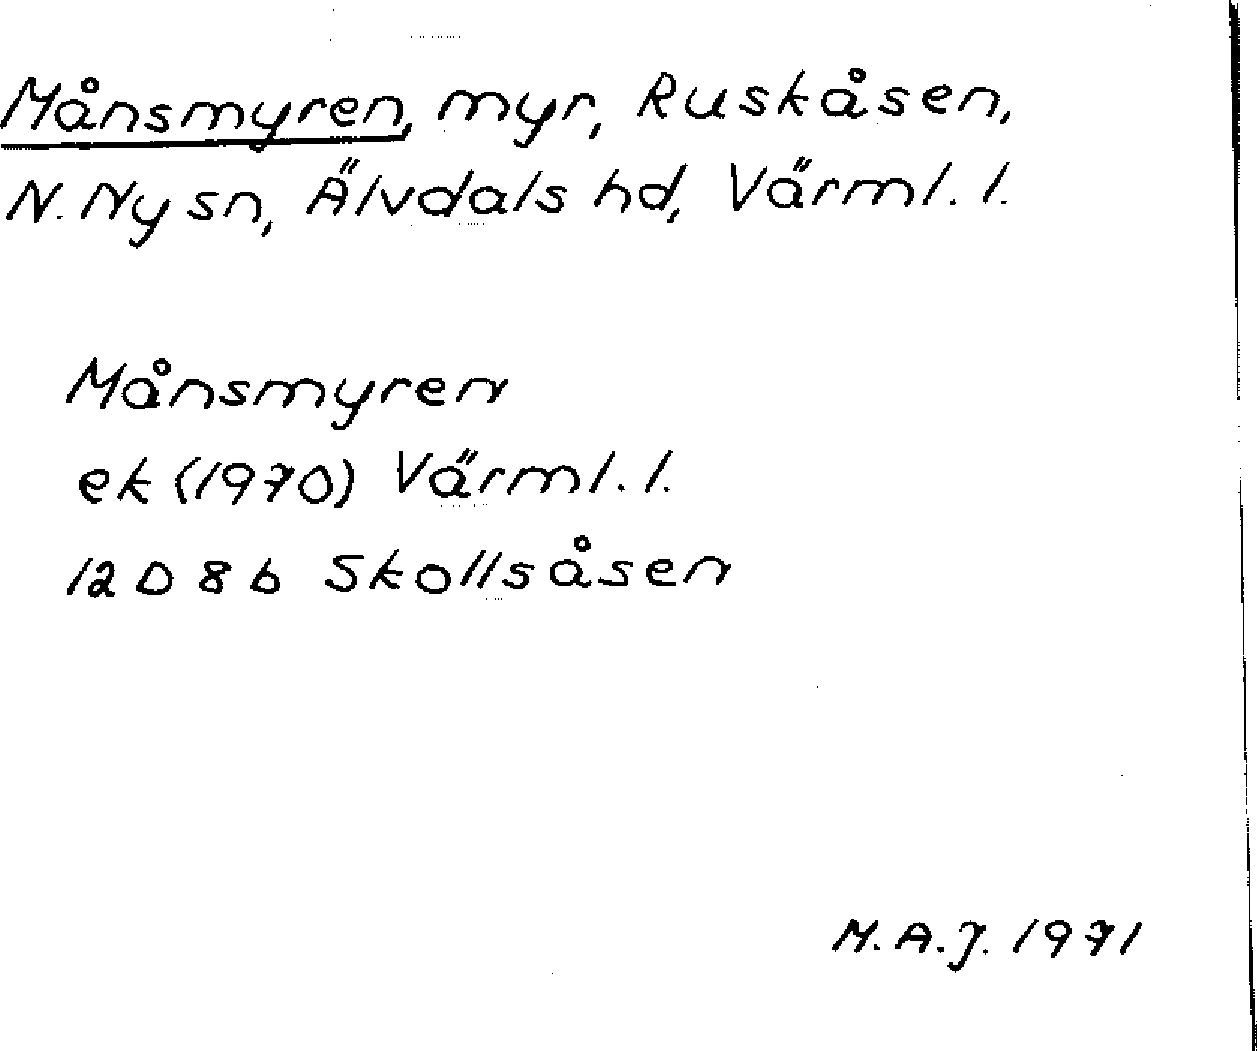 Månsmyren, myr, Ruskåsen,
N. Ny sn, Älvdals hd, Värml. l.
Månsmyren
ek (1970) Värml. l.
12 D 8 b Skollsåsen
M. A. J. 1971